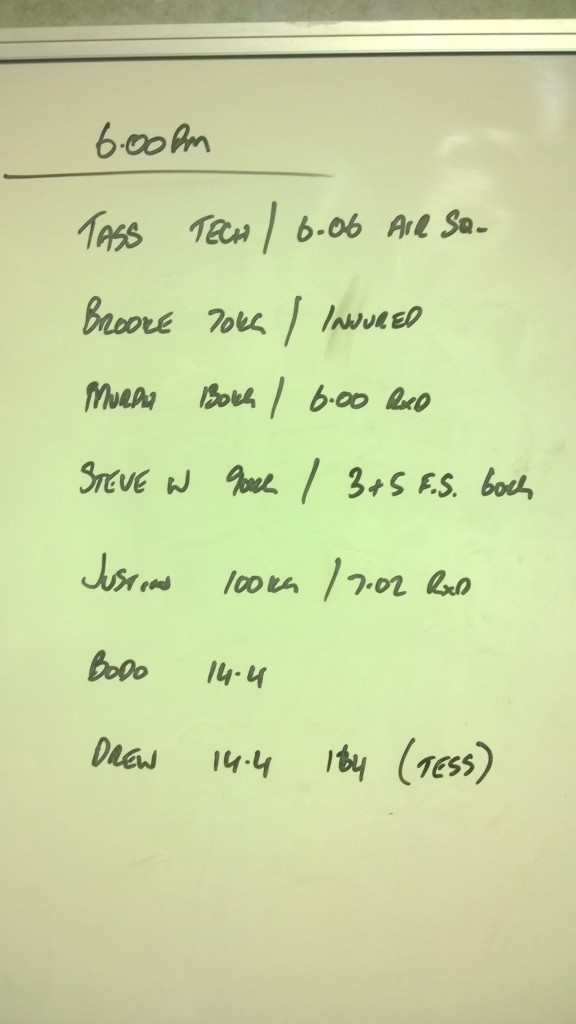 6.00Pm
TASS TECH / 6.06 AIR SQ-
BROOKE 70KG / INJURED
MURPH 130KG / 6.00 RXD
STEVE W 90KG / 3+5 F.S. 60KG
JUSTIN 100KG / 7.02 RXD
BODO 14.4
DREW 14.4 164 (TESS)